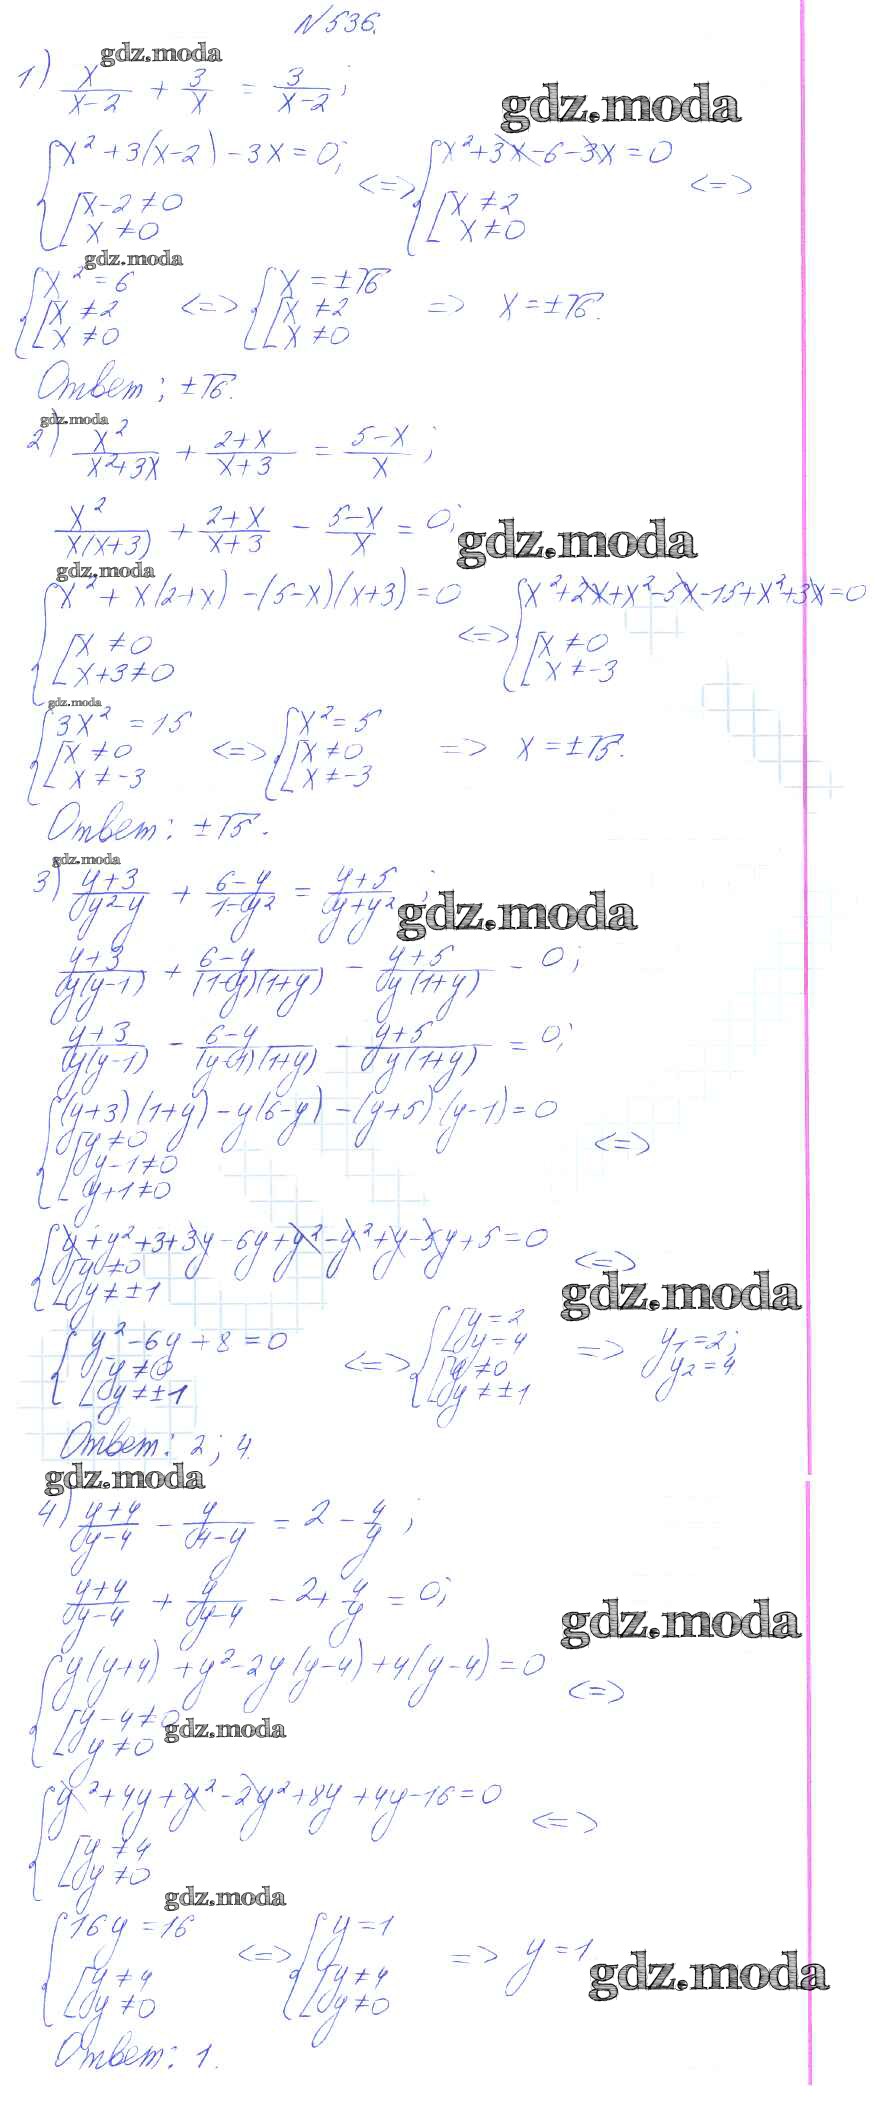 №536.
gdz.moda
1) x/(x-2) + 3/x = 3/(x-2);
gdz.moda
{x² + 3(x-2) - 3x = 0; [x-2 ≠ 0 x ≠ 0 <=> {x² + 3x - 6 - 3x = 0 [x ≠ 2 x ≠ 0 <=>
gdz.moda
{x² = 6 [x ≠ 2 x ≠ 0 <=> {x = ±√6 [x ≠ 2 x ≠ 0 => x = ±√6.
Ответ; ±√6.
gdz.moda
2) x²/(x²+3x) + (2+x)/(x+3) = (5-x)/x;
x²/(x(x+3)) + (2+x)/(x+3) - (5-x)/x = 0;
gdz.moda
gdz.moda
{x² + x(2+x) - (5-x)(x+3) = 0 [x ≠ 0 x+3 ≠ 0 <=> {x² + 2x + x² - 5x - 15 + x² + 3x = 0 [x ≠ 0 x ≠ -3
gdz.moda
{3x² = 15 [x ≠ 0 x ≠ -3 <=> {x² = 5 [x ≠ 0 x ≠ -3 => x = ±√5.
Ответ: ±√5.
gdz.moda
3) (y+3)/(y²-y) + (6-y)/(1-y²) = (y+5)/(y+y²);
gdz.moda
(y+3)/(y(y-1)) + (6-y)/((1-y)(1+y)) - (y+5)/(y(1+y)) - 0;
(y+3)/(y(y-1)) - (6-y)/((y-1)(1+y)) - (y+5)/(y(1+y)) = 0;
{(y+3)(1+y) - y(6-y) - (y+5)·(y-1) = 0 [y ≠ 0 y-1 ≠ 0 y+1 ≠ 0 <=>
{y + y² + 3 + 3y - 6y + y² - y² + y - 5y + 5 = 0 [y ≠ 0 y ≠ ±1 <=>
gdz.moda
{y² - 6y + 8 = 0 [y ≠ 0 y ≠ ±1 <=> {[y = 2 y = 4 [y ≠ 0 y ≠ ±1 => y₁ = 2; y₂ = 4.
Ответ: 2; 4.
gdz.moda
4) (y+4)/(y-4) - y/(4-y) = 2 - 4/y;
(y+4)/(y-4) + y/(y-4) - 2 + 4/y = 0;
gdz.moda
{y(y+4) + y² - 2y(y-4) + 4(y-4) = 0 [y-4 ≠ 0 y ≠ 0 <=>
gdz.moda
{y² + 4y + y² - 2y² + 8y + 4y - 16 = 0 [y ≠ 4 y ≠ 0 <=>
gdz.moda
{16y = 16 [y ≠ 4 y ≠ 0 <=> {y = 1 [y ≠ 4 y ≠ 0 => y = 1
gdz.moda
Ответ: 1.